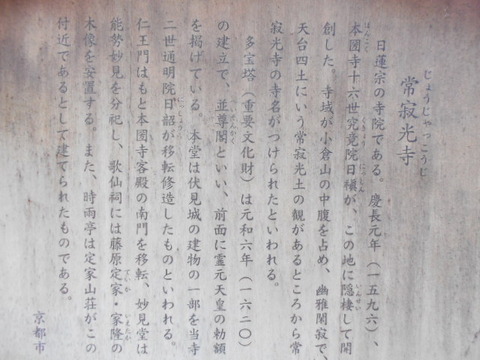 じょうじゃっこうじ
常寂光寺
日蓮宗の寺院である。慶長元年（一五九六）、
ほんこくじ くきょういんにっしん いんせい
本圀寺十六世究竟院日禛が、この地に隠棲して開
創した。寺域が小倉山の中腹を占め、幽雅閑寂で、
天台四土にいう常寂光土の観があるところから常
寂光寺の寺名がつけられたといわれる。
多宝塔（重要文化財）は元和六年（一六二〇）
の建立で、並尊閣といい、前面に霊元天皇の勅額
を掲げている。本堂は伏見城の建物の一部を当寺
二世通明院日韶が移転修造したものといわれる。
仁王門はもと本圀寺客殿の南門を移転、妙見堂は
能勢妙見を分祀し、歌仙祠には藤原定家・家隆の
木像を安置する。また、時雨亭は定家山荘がこの
付近であるとして建てられたものである。
京都市